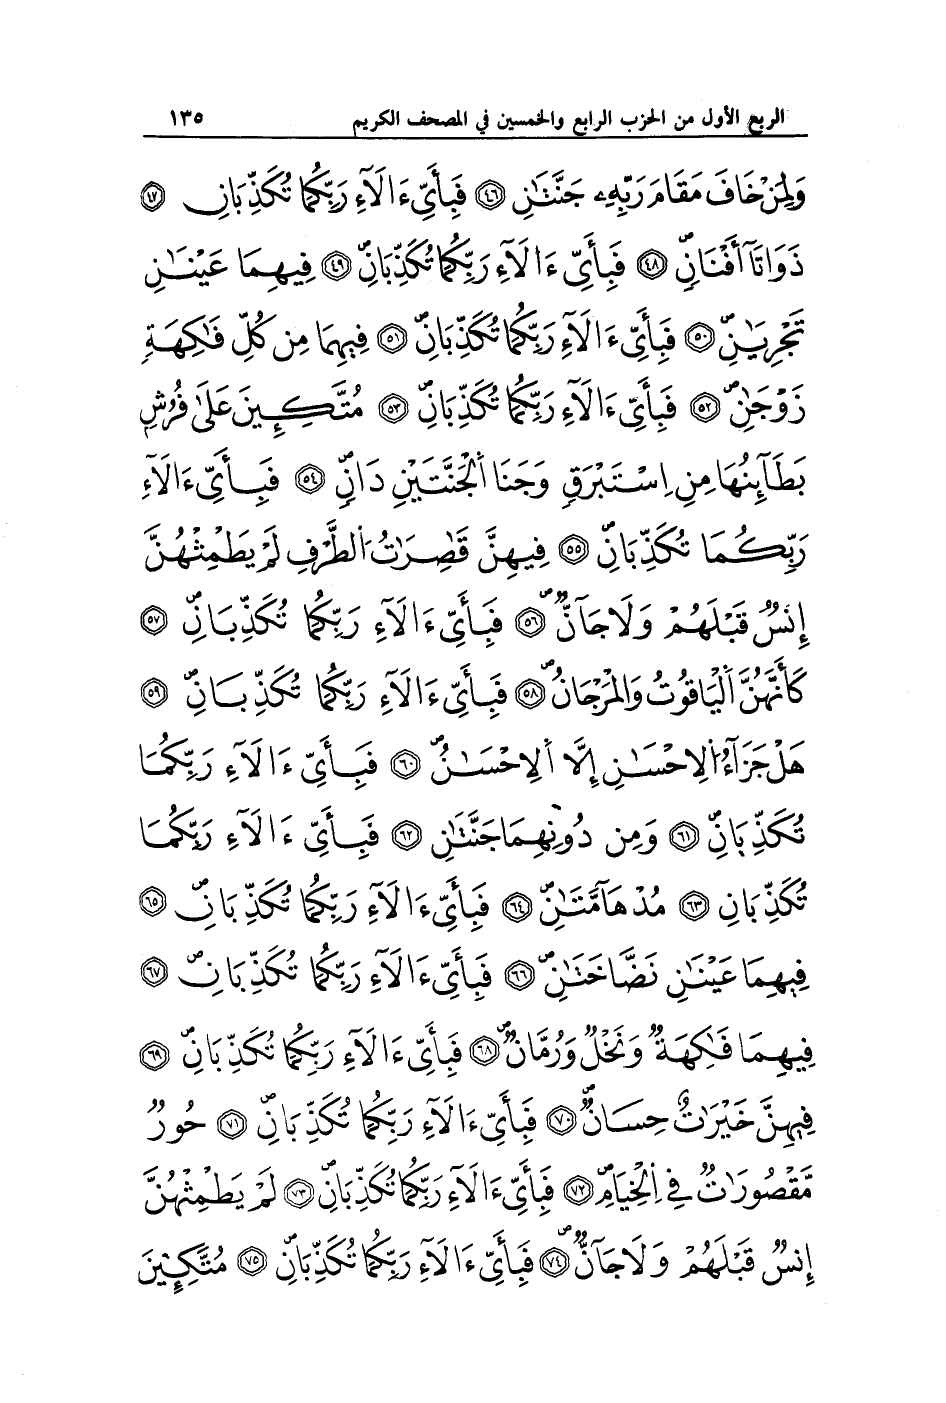 الربع الأول من الحزب الرابع والخمسين في المصحف الكريم ١٣٥
وَلِمَنْ خَافَ مَقَامَ رَبِّهِۦ جَنَّتَٰنِ ٤٦ فَبِأَيِّ ءَالَآءِ رَبِّكُمَا تُكَذِّبَانِ ٤٧
ذَوَاتَآ أَفْنَانٍۖ ٤٨ فَبِأَيِّ ءَالَآءِ رَبِّكُمَا تُكَذِّبَانِۖ ٤٩ فِيهِمَا عَيْنَٰنِ
تَجْرِيَٰنِۖ ٥٠ فَبِأَيِّ ءَالَآءِ رَبِّكُمَا تُكَذِّبَانِۖ ٥١ فِيهِمَا مِن كُلِّ فَٰكِهَةٍ
زَوْجَٰنِۖ ٥٢ فَبِأَيِّ ءَالَآءِ رَبِّكُمَا تُكَذِّبَانِۖ ٥٣ مُتَّكِـِٕينَ عَلَىٰ فُرُشٍ
بَطَآئِنُهَا مِنِ اِسْتَبْرَقٍ وَجَنَا اَلْجَنَّتَيْنِ دَانٍۖ ٥٤ فَبِأَيِّ ءَالَآءِ
رَبِّكُمَا تُكَذِّبَانِۖ ٥٥ فِيهِنَّ قَٰصِرَٰتُ اُلطَّرْفِ لَمْ يَطْمِثْهُنَّ
إِنسٌ قَبْلَهُمْ وَلَا جَآنٌّۖ ٥٦ فَبِأَيِّ ءَالَآءِ رَبِّكُمَا تُكَذِّبَانِۖ ٥٧
كَأَنَّهُنَّ اَلْيَاقُوتُ وَالْمَرْجَانُۖ ٥٨ فَبِأَيِّ ءَالَآءِ رَبِّكُمَا تُكَذِّبَانِۖ ٥٩
هَلْ جَزَآءُ اُلِاحْسَٰنِ إِلَّا اَلِاحْسَٰنُۖ ٦٠ فَبِأَيِّ ءَالَآءِ رَبِّكُمَا
تُكَذِّبَانِۖ ٦١ وَمِن دُونِهِمَا جَنَّتَٰنِ ٦٢ فَبِأَيِّ ءَالَآءِ رَبِّكُمَا
تُكَذِّبَانِ ٦٣ مُدْهَآمَّتَٰنِۖ ٦٤ فَبِأَيِّ ءَالَآءِ رَبِّكُمَا تُكَذِّبَانِۖ ٦٥
فِيهِمَا عَيْنَٰنِ نَضَّاخَتَٰنِۖ ٦٦ فَبِأَيِّ ءَالَآءِ رَبِّكُمَا تُكَذِّبَانِۖ ٦٧
فِيهِمَا فَٰكِهَةٌ وَنَخْلٌ وَرُمَّانٌۖ ٦٨ فَبِأَيِّ ءَالَآءِ رَبِّكُمَا تُكَذِّبَانِۖ ٦٩
فِيهِنَّ خَيْرَٰتٌ حِسَانٌۖ ٧٠ فَبِأَيِّ ءَالَآءِ رَبِّكُمَا تُكَذِّبَانِۖ ٧١ حُورٌ
مَّقْصُورَٰتٌ فِي اِلْخِيَامِۖ ٧٢ فَبِأَيِّ ءَالَآءِ رَبِّكُمَا تُكَذِّبَانِۖ ٧٣ لَمْ يَطْمِثْهُنَّ
إِنسٌ قَبْلَهُمْ وَلَا جَآنٌّۖ ٧٤ فَبِأَيِّ ءَالَآءِ رَبِّكُمَا تُكَذِّبَانِۖ ٧٥ مُتَّكِـِٕينَ